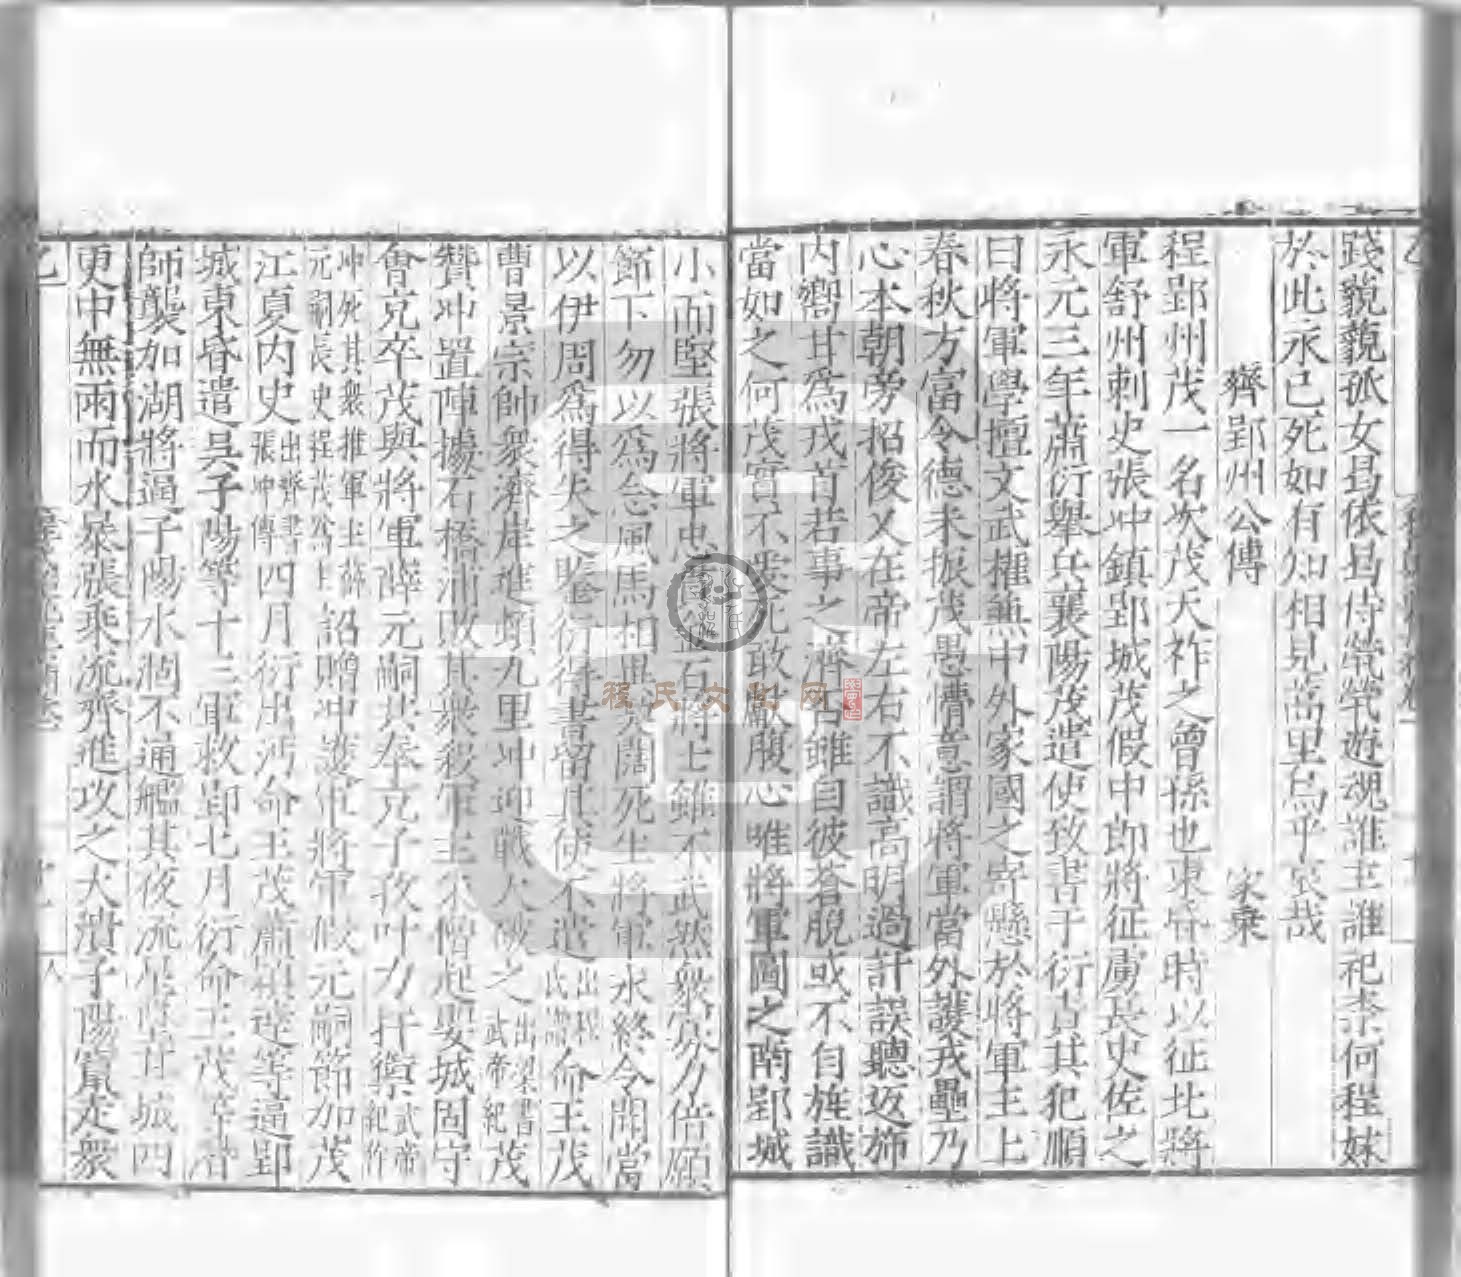 踐藐藐孤女曷依曷侍煢煢遊魂誰主誰祀柰何程妹
於此永已死如有知相見蒿里烏乎哀哉
齊郢州公傳 家乘
程郢州茂一名次茂天祚之曾孫也東昏時以征北將
軍舒州刺史張冲鎮郢城茂假中郎將征虜長史佐之
永元三年蕭衍舉兵襄陽茂遣使致書于衍責其犯順
曰將軍學擅文武權兼中外家國之寄懸於將軍主上
春秋方富令德未振茂愚懵意謂將軍當外護戎壘乃
心本朝旁招俊乂在帝左右不識高明過計誤聽返斾
内嚮甘爲戎首若事之濟否雖自彼蒼脱或不自旌識
當如之何茂實不佞此敢獻腹心唯將軍圖之南郢城
小而堅張將軍忠金石將士雖不武然衆寡分倍願
節下勿以爲念風馬相異契闊死生將軍永終令聞當
以伊周爲得失之賬衍得書留其使不遣出程氏譜命王茂
曹景宗帥衆濟岸進頓九里冲迎戰大破之出梁書武帝紀茂
贊冲置陣據石橋浦敗其衆移軍主朱僧起嬰城固守
會克卒茂與將軍薛元嗣其奉克子孜叶力扞禦武帝紀作
冲死其衆推軍主薛元嗣長史程茂爲主詔贈冲護軍將軍假元嗣節加茂
江夏内史出齊書張冲傳四月衍出沔命王茂蕭穎達等逼郢
城東昏遣吳子陽等十三軍救郢七月衍命王茂等潛
師襲加湖將逼子陽水涸不通艦其夜流星墜其城四
更中無雨而水暴漲乘流齊進攻之大潰子陽竄走衆